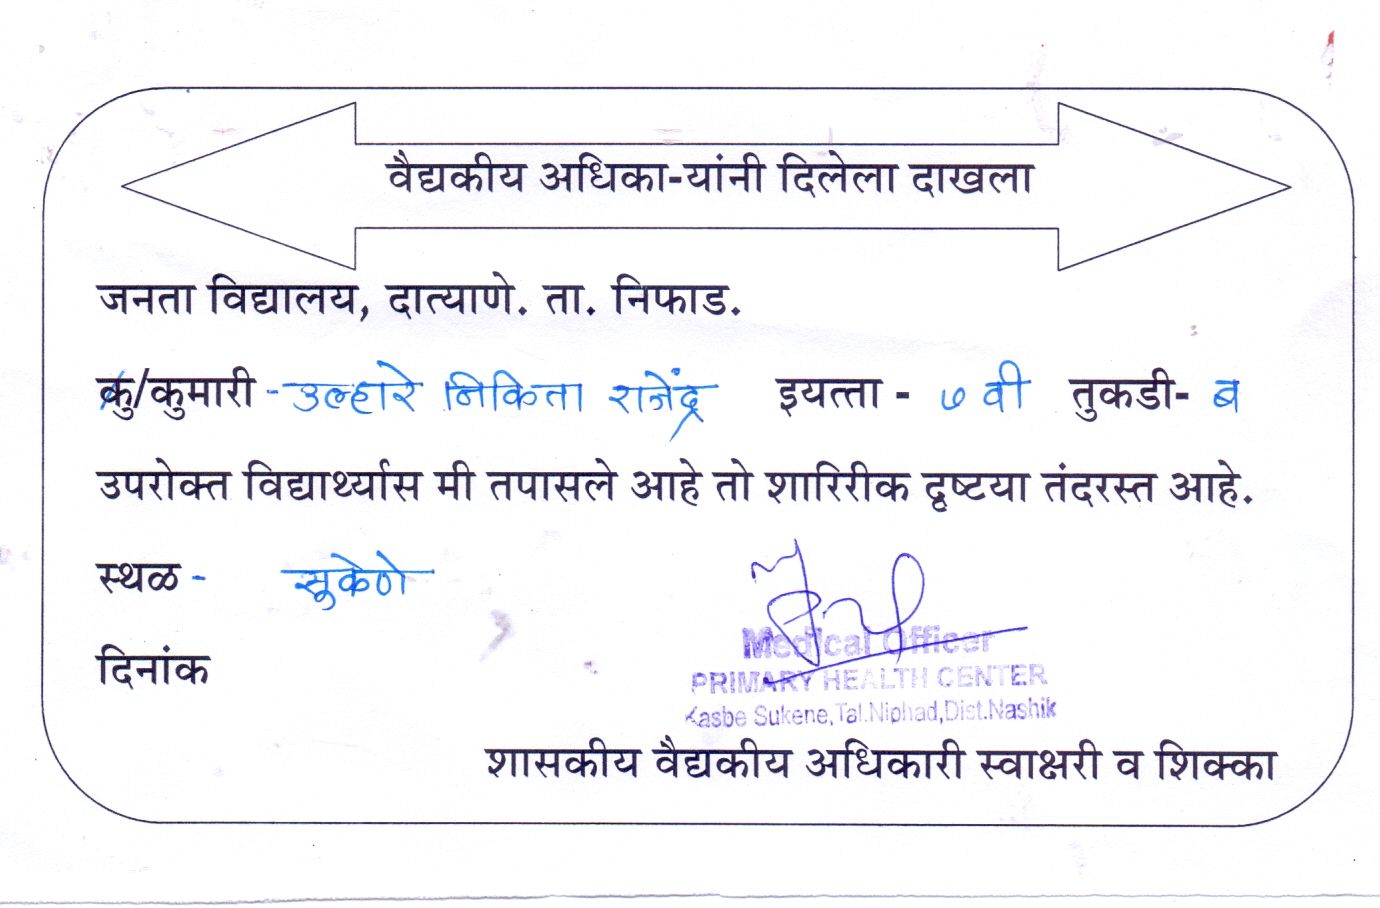 वैद्यकीय अधिका-यांनी दिलेला दाखला
जनता विद्यालय, दात्याणे. ता. निफाड.
कु/कुमारी - उल्हारे निकिता राजेंद्र इयत्ता - ७ वी तुकडी- ब
उपरोक्त विद्यार्थ्यास मी तपासले आहे तो शारिरीक दृष्टया तंदरस्त आहे.
स्थळ - सुकेणे
दिनांक
Medical Officer
PRIMARY HEALTH CENTER
Kasbe Sukene,Tal.Niphad,Dist.Nashik
शासकीय वैद्यकीय अधिकारी स्वाक्षरी व शिक्का